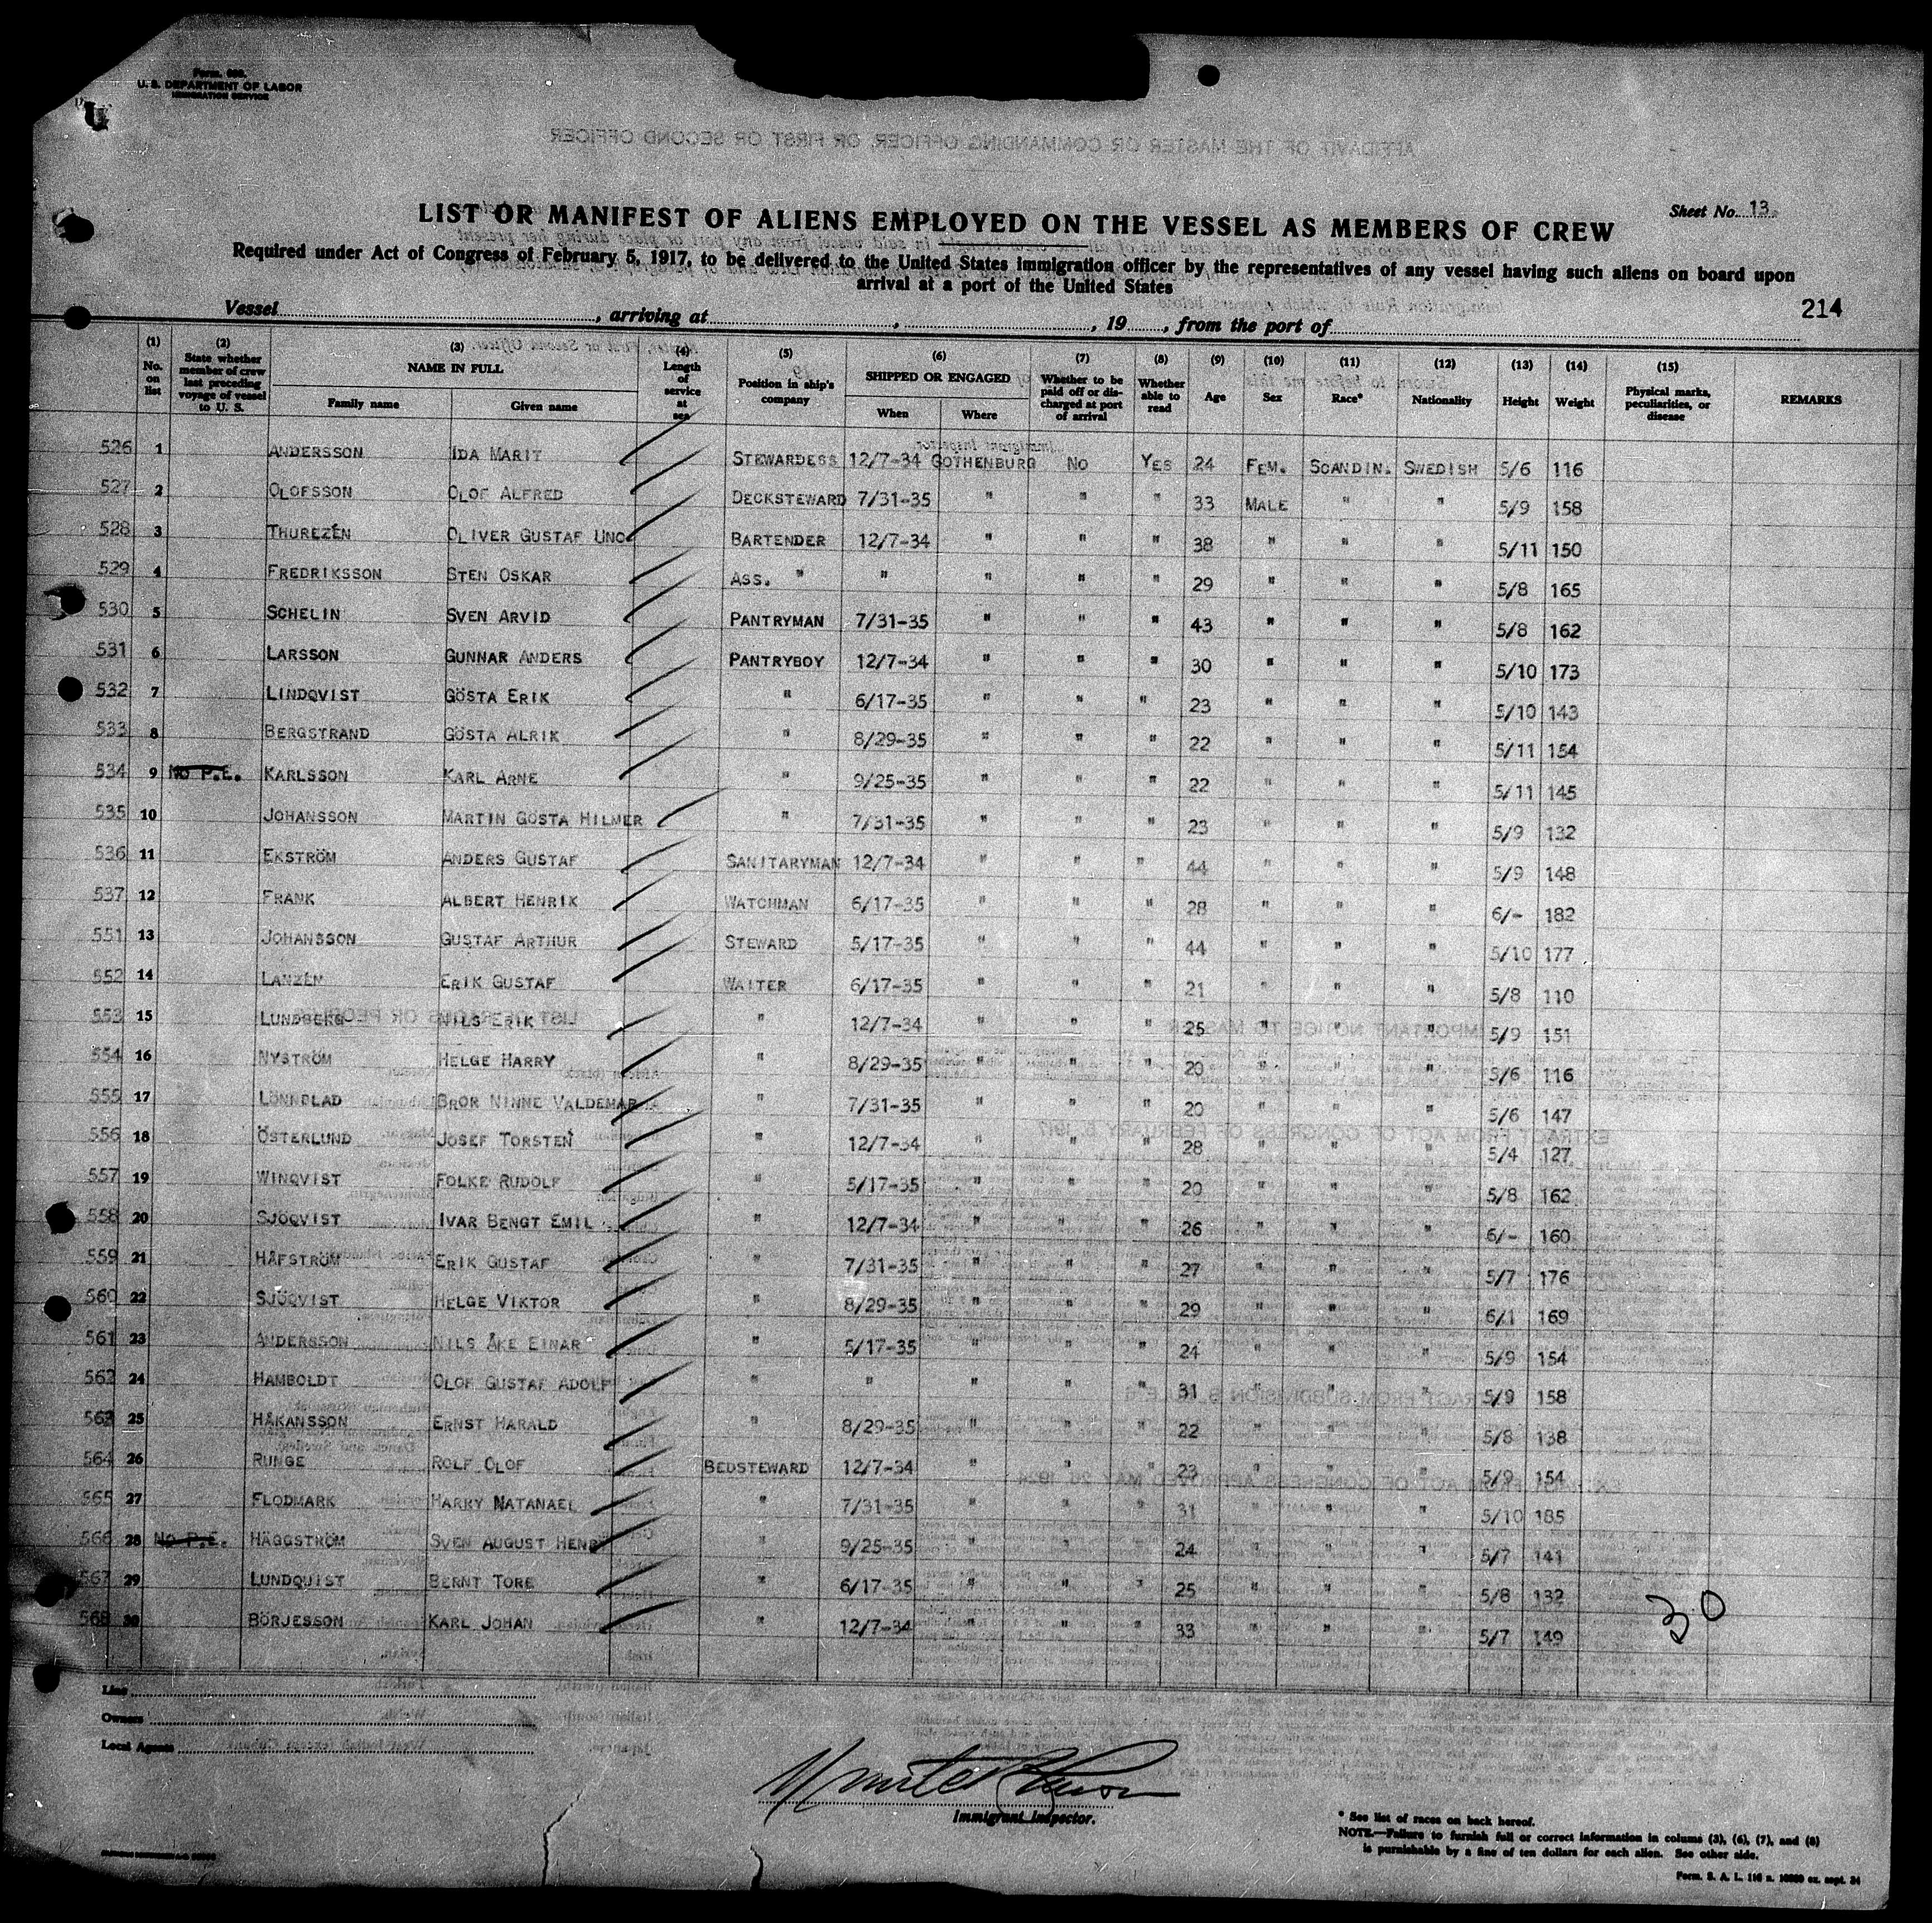 Form 680.
U. S. DEPARTMENT OF LABOR
IMMIGRATION SERVICE
AFFIDAVIT OF THE MASTER OR COMMANDING OFFICER, OR FIRST OR SECOND OFFICER
Sheet No. 13.
LIST OR MANIFEST OF ALIENS EMPLOYED ON THE VESSEL AS MEMBERS OF CREW
Required under Act of Congress of February 5, 1917, to be delivered to the United States immigration officer by the representatives of any vessel having such aliens on board upon
arrival at a port of the United States
214
Vessel , arriving at , , 19 , from the port of
(1) No. on list (2) State whether member of crew last preceding voyage of vessel to U. S. (3) NAME IN FULL Family name Given name (4) Length of service at sea (5) Position in ship's company (6) SHIPPED OR ENGAGED When Where (7) Whether to be paid off or discharged at port of arrival (8) Whether able to read (9) Age (10) Sex (11) Race* (12) Nationality (13) Height (14) Weight (15) Physical marks, peculiarities, or disease REMARKS
526 1 ANDERSSON IDA MARIT STEWARDESS 12/7-34 GOTHENBURG NO YES 24 FEM. SCANDIN. SWEDISH 5/6 116
527 2 OLOFSSON OLOF ALFRED DECKSTEWARD 7/31-35 " " " 33 MALE " " 5/9 158
528 3 THUREZÉN OLIVER GUSTAF UNO BARTENDER 12/7-34 " " " 38 " " " 5/11 150
529 4 FREDRIKSSON STEN OSKAR ASS. " " " " " 29 " " " 5/8 165
530 5 SCHELIN SVEN ARVID PANTRYMAN 7/31-35 " " " 43 " " " 5/8 162
531 6 LARSSON GUNNAR ANDERS PANTRYBOY 12/7-34 " " " 30 " " " 5/10 173
532 7 LINDQVIST GÖSTA ERIK " 6/17-35 " " " 23 " " " 5/10 143
533 8 BERGSTRAND GÖSTA ALRIK " 8/29-35 " " " 22 " " " 5/11 154
534 9 NO P.E. KARLSSON KARL ARNE " 9/25-35 " " " 22 " " " 5/11 145
535 10 JOHANSSON MARTIN GÖSTA HILMER " 7/31-35 " " " 23 " " " 5/9 132
536 11 EKSTRÖM ANDERS GUSTAF SANITARYMAN 12/7-34 " " " 44 " " " 5/9 148
537 12 FRANK ALBERT HENRIK WATCHMAN 6/17-35 " " " 28 " " " 6/- 182
551 13 JOHANSSON GUSTAF ARTHUR STEWARD 5/17-35 " " " 44 " " " 5/10 177
552 14 LANZÉN ERIK GUSTAF WAITER 6/17-35 " " " 21 " " " 5/8 110
553 15 LUNDBERG NILS ERIK " 12/7-34 " " " 25 " " " 5/9 151
554 16 NYSTRÖM HELGE HARRY " 8/29-35 " " " 20 " " " 5/6 116
555 17 LÖNNBLAD BROR NINNE VALDEMAR " 7/31-35 " " " 20 " " " 5/6 147
556 18 ÖSTERLUND JOSEF TORSTEN " 12/7-34 " " " 28 " " " 5/4 127
557 19 WINQVIST FOLKE RUDOLF " 5/17-35 " " " 20 " " " 5/8 162
558 20 SJÖQVIST IVAR BENGT EMIL " 12/7-34 " " " 26 " " " 6/- 160
559 21 HÄFSTRÖM ERIK GUSTAF " 7/31-35 " " " 27 " " " 5/7 176
560 22 SJÖQVIST HELGE VIKTOR " 8/29-35 " " " 29 " " " 6/1 169
561 23 ANDERSSON NILS ÅKE EINAR " 5/17-35 " " " 24 " " " 5/9 154
562 24 HAMBOLDT OLOF GUSTAF ADOLF " " " " " 31 " " " 5/9 158
563 25 HÅKANSSON ERNST HARALD " 8/29-35 " " " 22 " " " 5/8 138
564 26 RUNGE ROLF OLOF BEDSTEWARD 12/7-34 " " " 23 " " " 5/9 154
565 27 FLODMARK HARRY NATANAEL " 7/31-35 " " " 31 " " " 5/10 185
566 28 NO P.E. HÄGGSTRÖM SVEN AUGUST HENR " 9/25-35 " " " 24 " " " 5/7 141
567 29 LUNDQUIST BERNT TORE " 6/17-35 " " " 25 " " " 5/8 132
568 30 BÖRJESSON KARL JOHAN " 12/7-34 " " " 33 " " " 5/7 149
30
Line
Owners
Local Agents
Immigrant Inspector.
* See list of races on back hereof.
NOTE.—Failure to furnish full or correct information in colums (3), (6), (7), and (8)
is purnishable by a fine of ten dollars for each alien. See other side.
Form. S. A. L. 116 a. ex. sept. 34